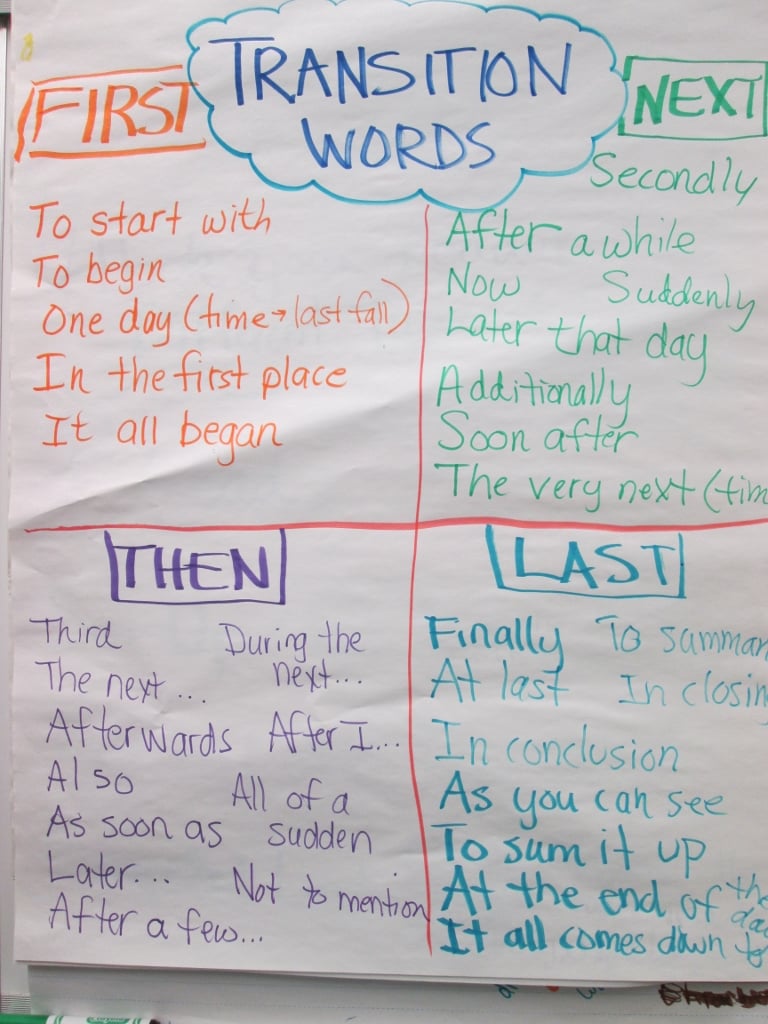 TRANSITION
WORDS
FIRST
To start with
To begin
One day (time→last fall)
In the first place
It all began
NEXT
Secondly
After a while
Now Suddenly
Later that day
Additionally
Soon after
The very next (tim
THEN
Third
The next ...
Afterwards
Also
As soon as
Later...
After a few...
During the
next...
After I...
All of a
sudden
Not to mention
LAST
Finally To summar
At last In closing
In conclusion
As you can see
To sum it up
At the end of the
day
It all comes down to